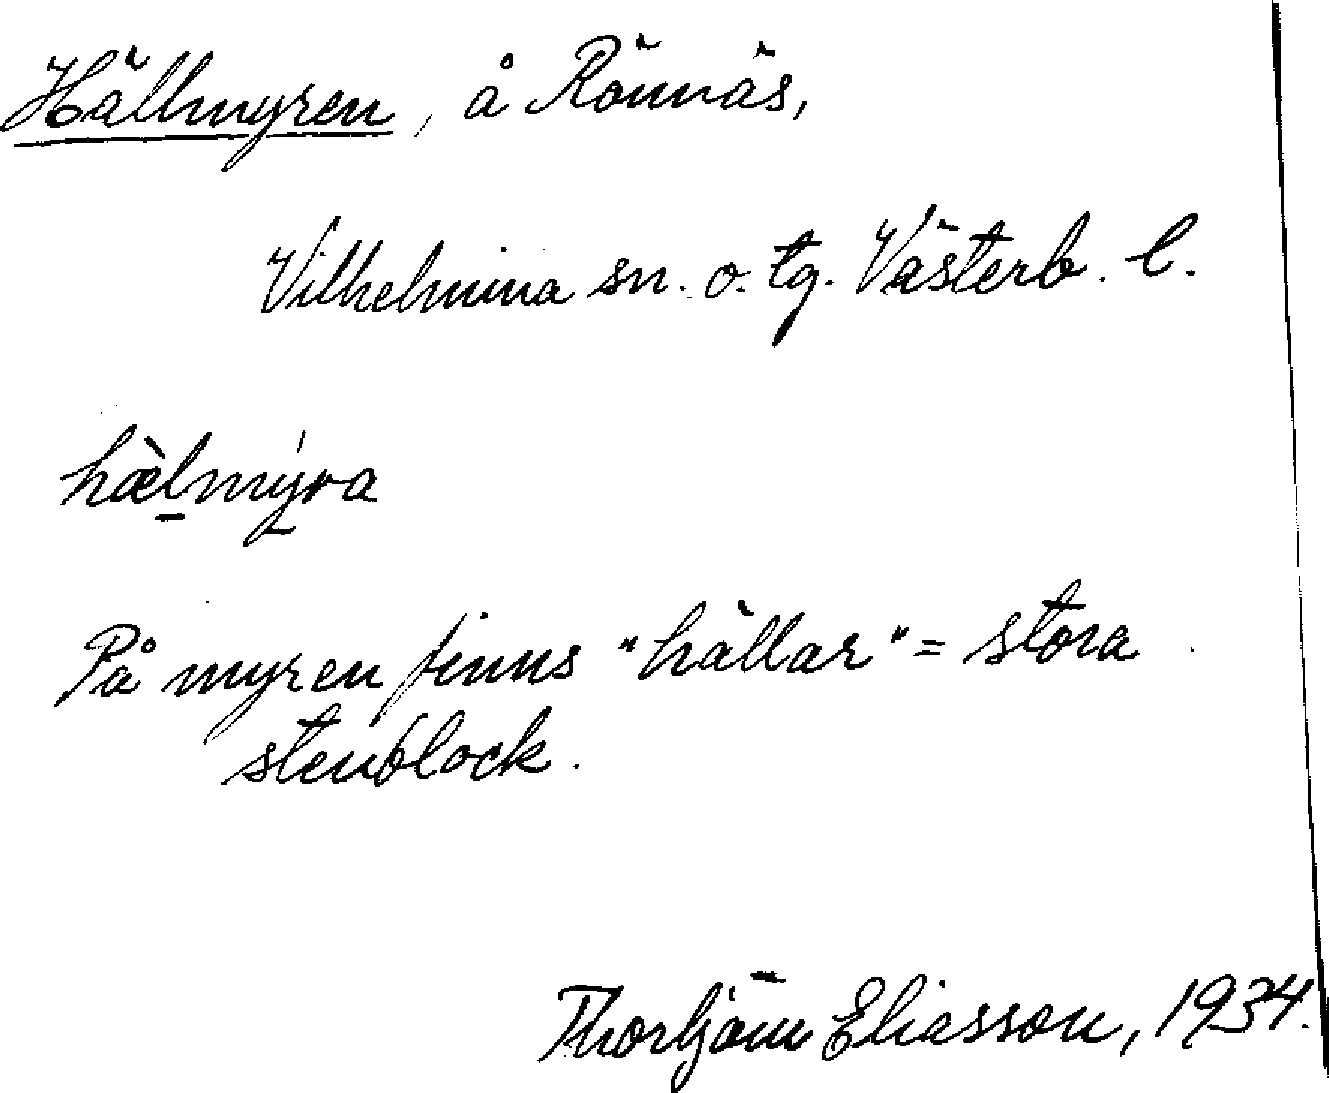 Hällmyren, å Rönnäs,
Vilhelmina sn. o. tg. Västerb. l.
hæ̀lmýra
På myren finns "hällar" = stora
stenblock.
Thorbjörn Eliasson, 1934.